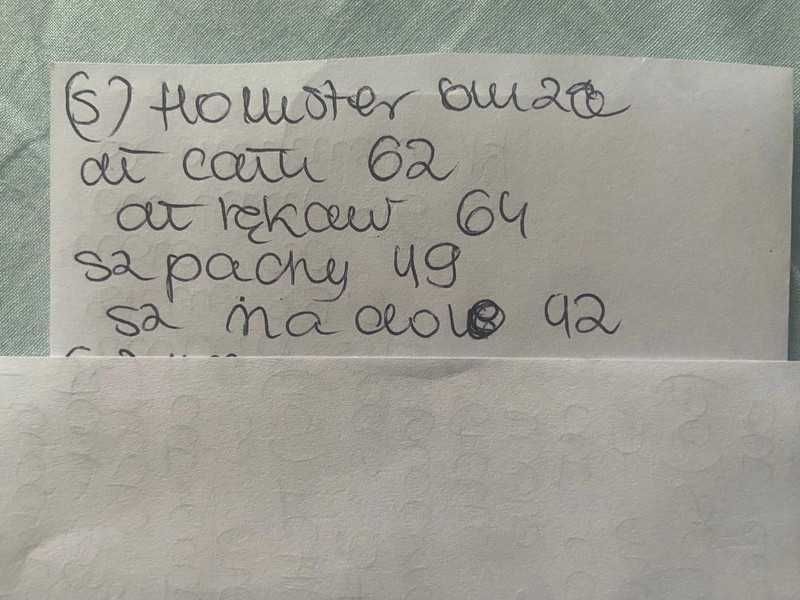 (S) Hollister bluza
dł 62
dł rękaw 64
sz pachy 49
sz na dole 42